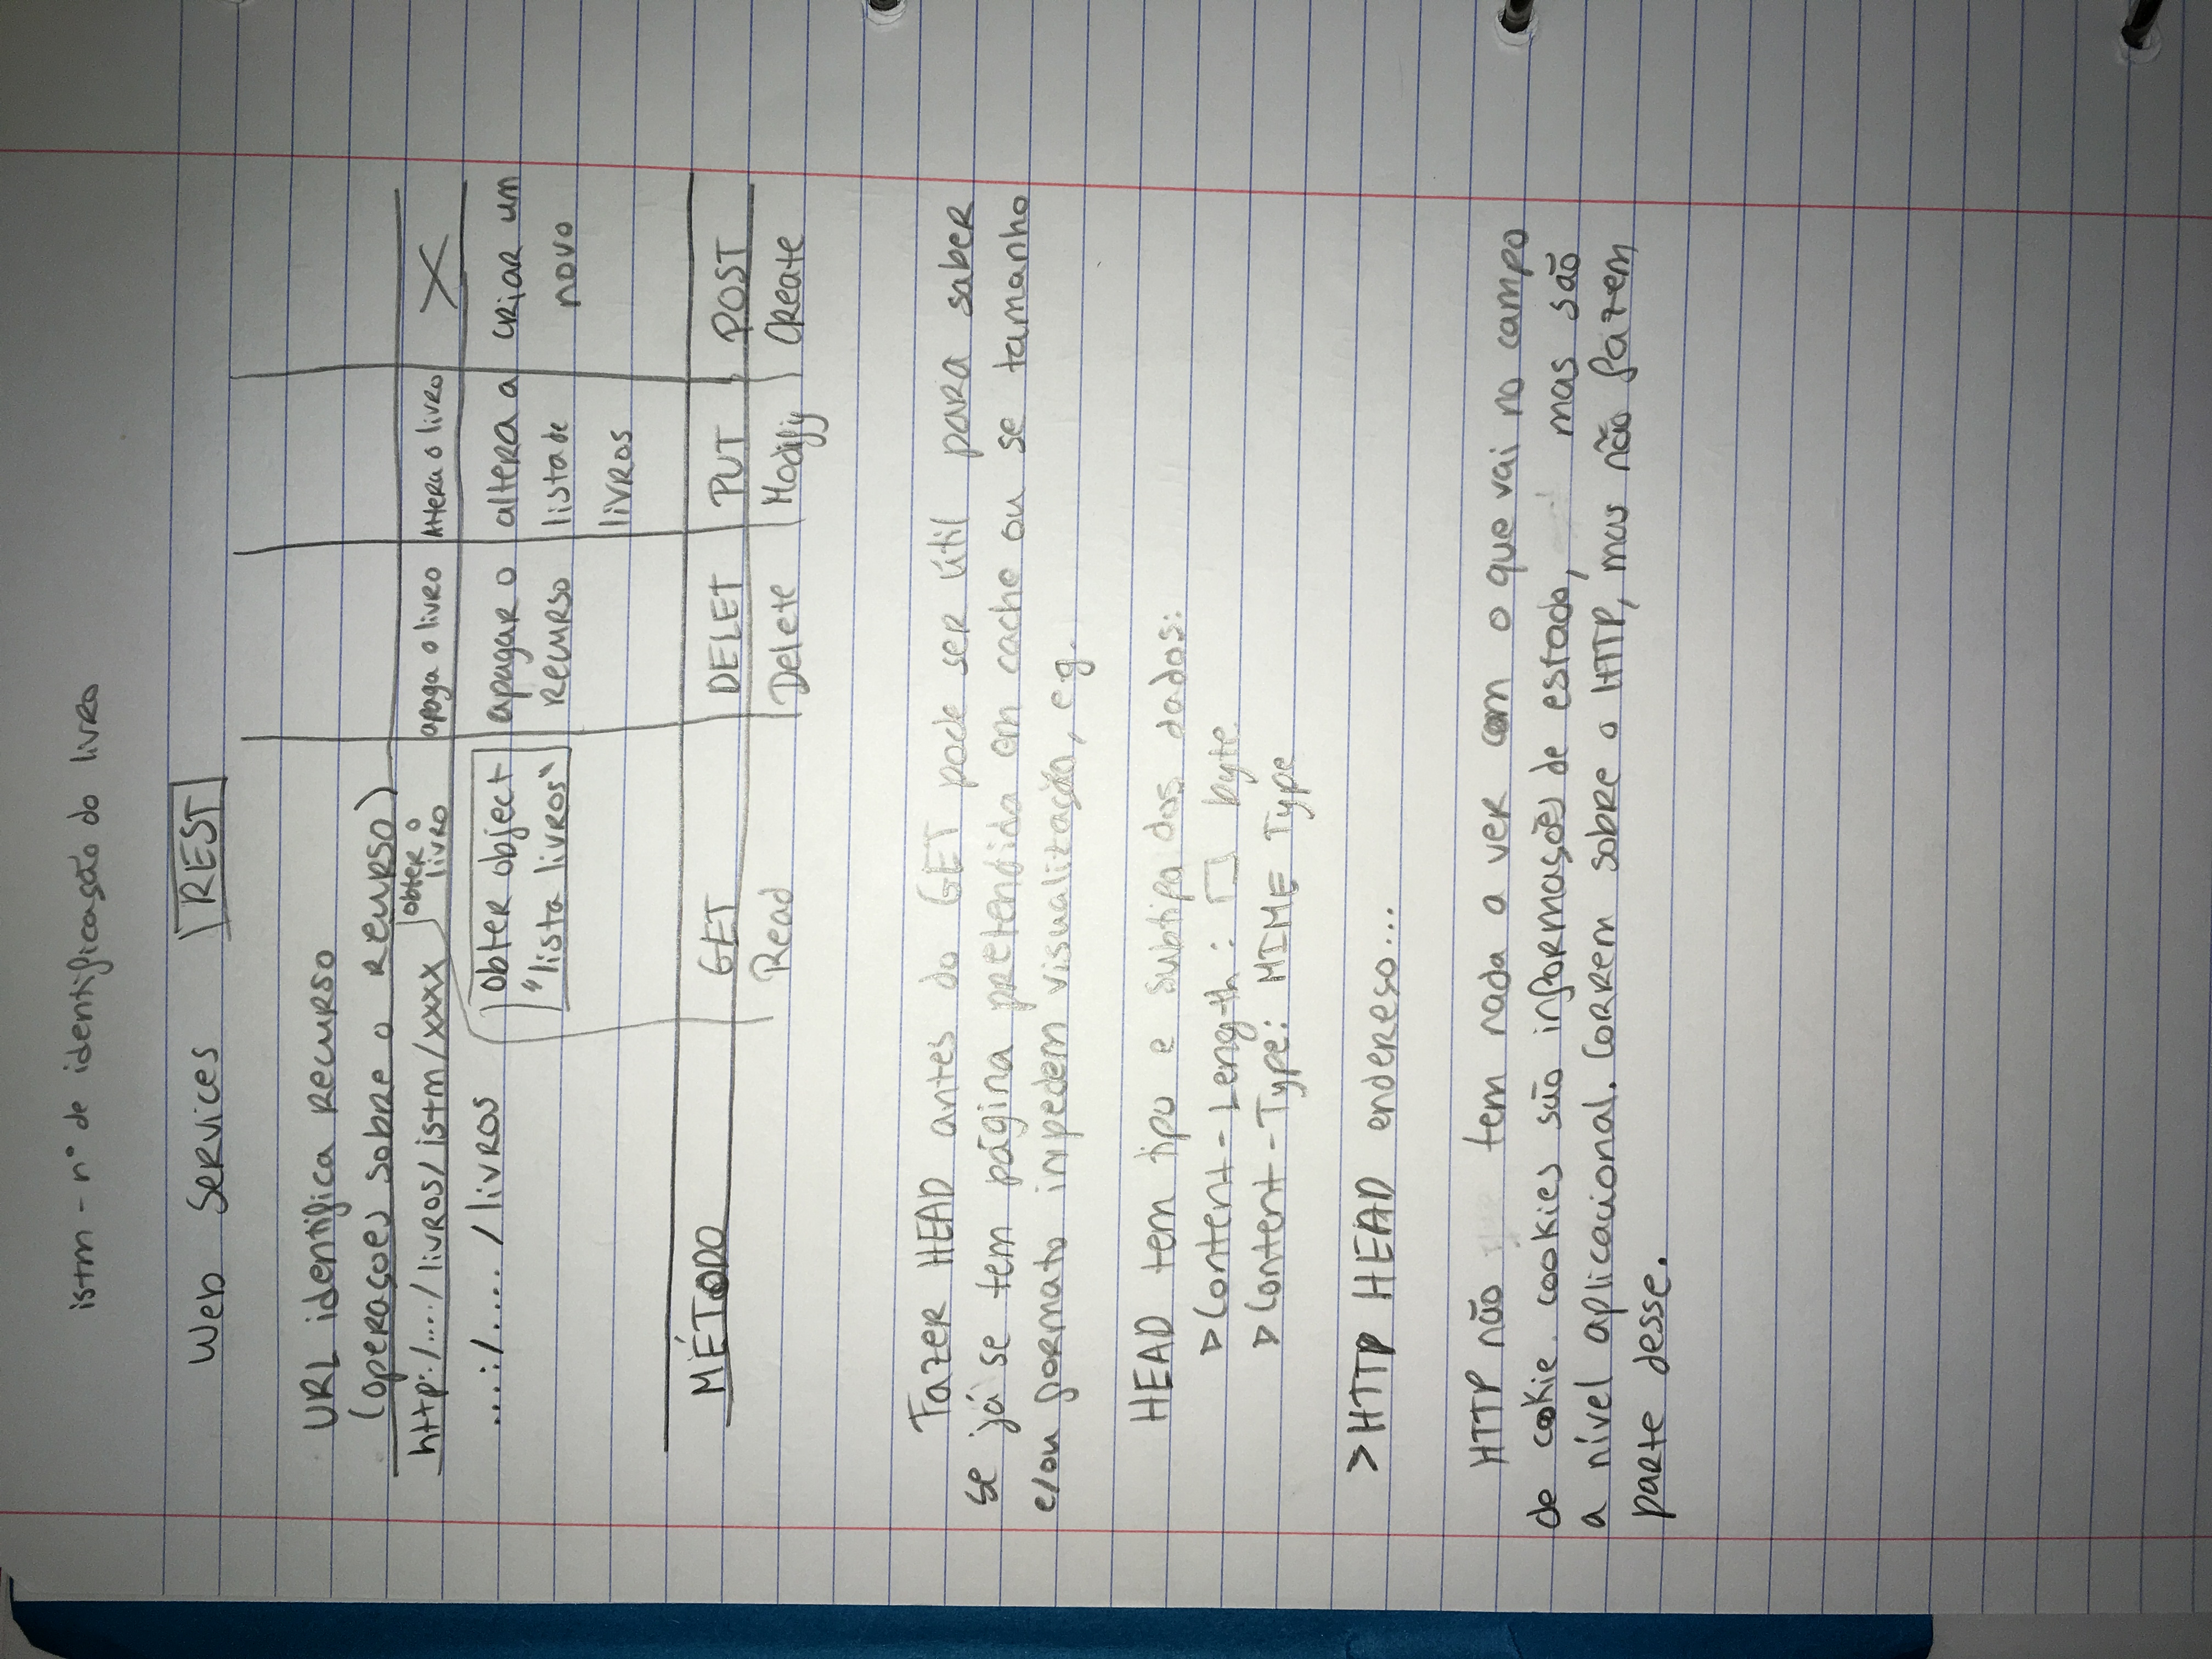 istm - nº de identificação do livro
Web Services REST
URL identifica recurso
(operações sobre o recurso)
http:/..../livros/istm/xxxx obter o livro apaga o livro Altera o livro X
...:/.... /livros obter object apagar o altera a criar um
"lista livros" recurso lista de novo
livros
MÉTODO GET DELET PUT POST
Read Delete Modify Create
Fazer HEAD antes do GET pode ser útil para saber
se já se tem página pretendida em cache ou se tamanho
e/ou formato impedem visualização, eg.
HEAD tem tipo e subtipo dos dados:
▷ Content-Length: □ byte
▷ Content-Type: MIME Type
>HTTP HEAD endereso...
HTTP não tem nada a ver com o que vai no campo
de cookie. cookies são informações de estado, mas são
a nível aplicacional. Correm sobre o HTTP, mas não fazem
parte desse.